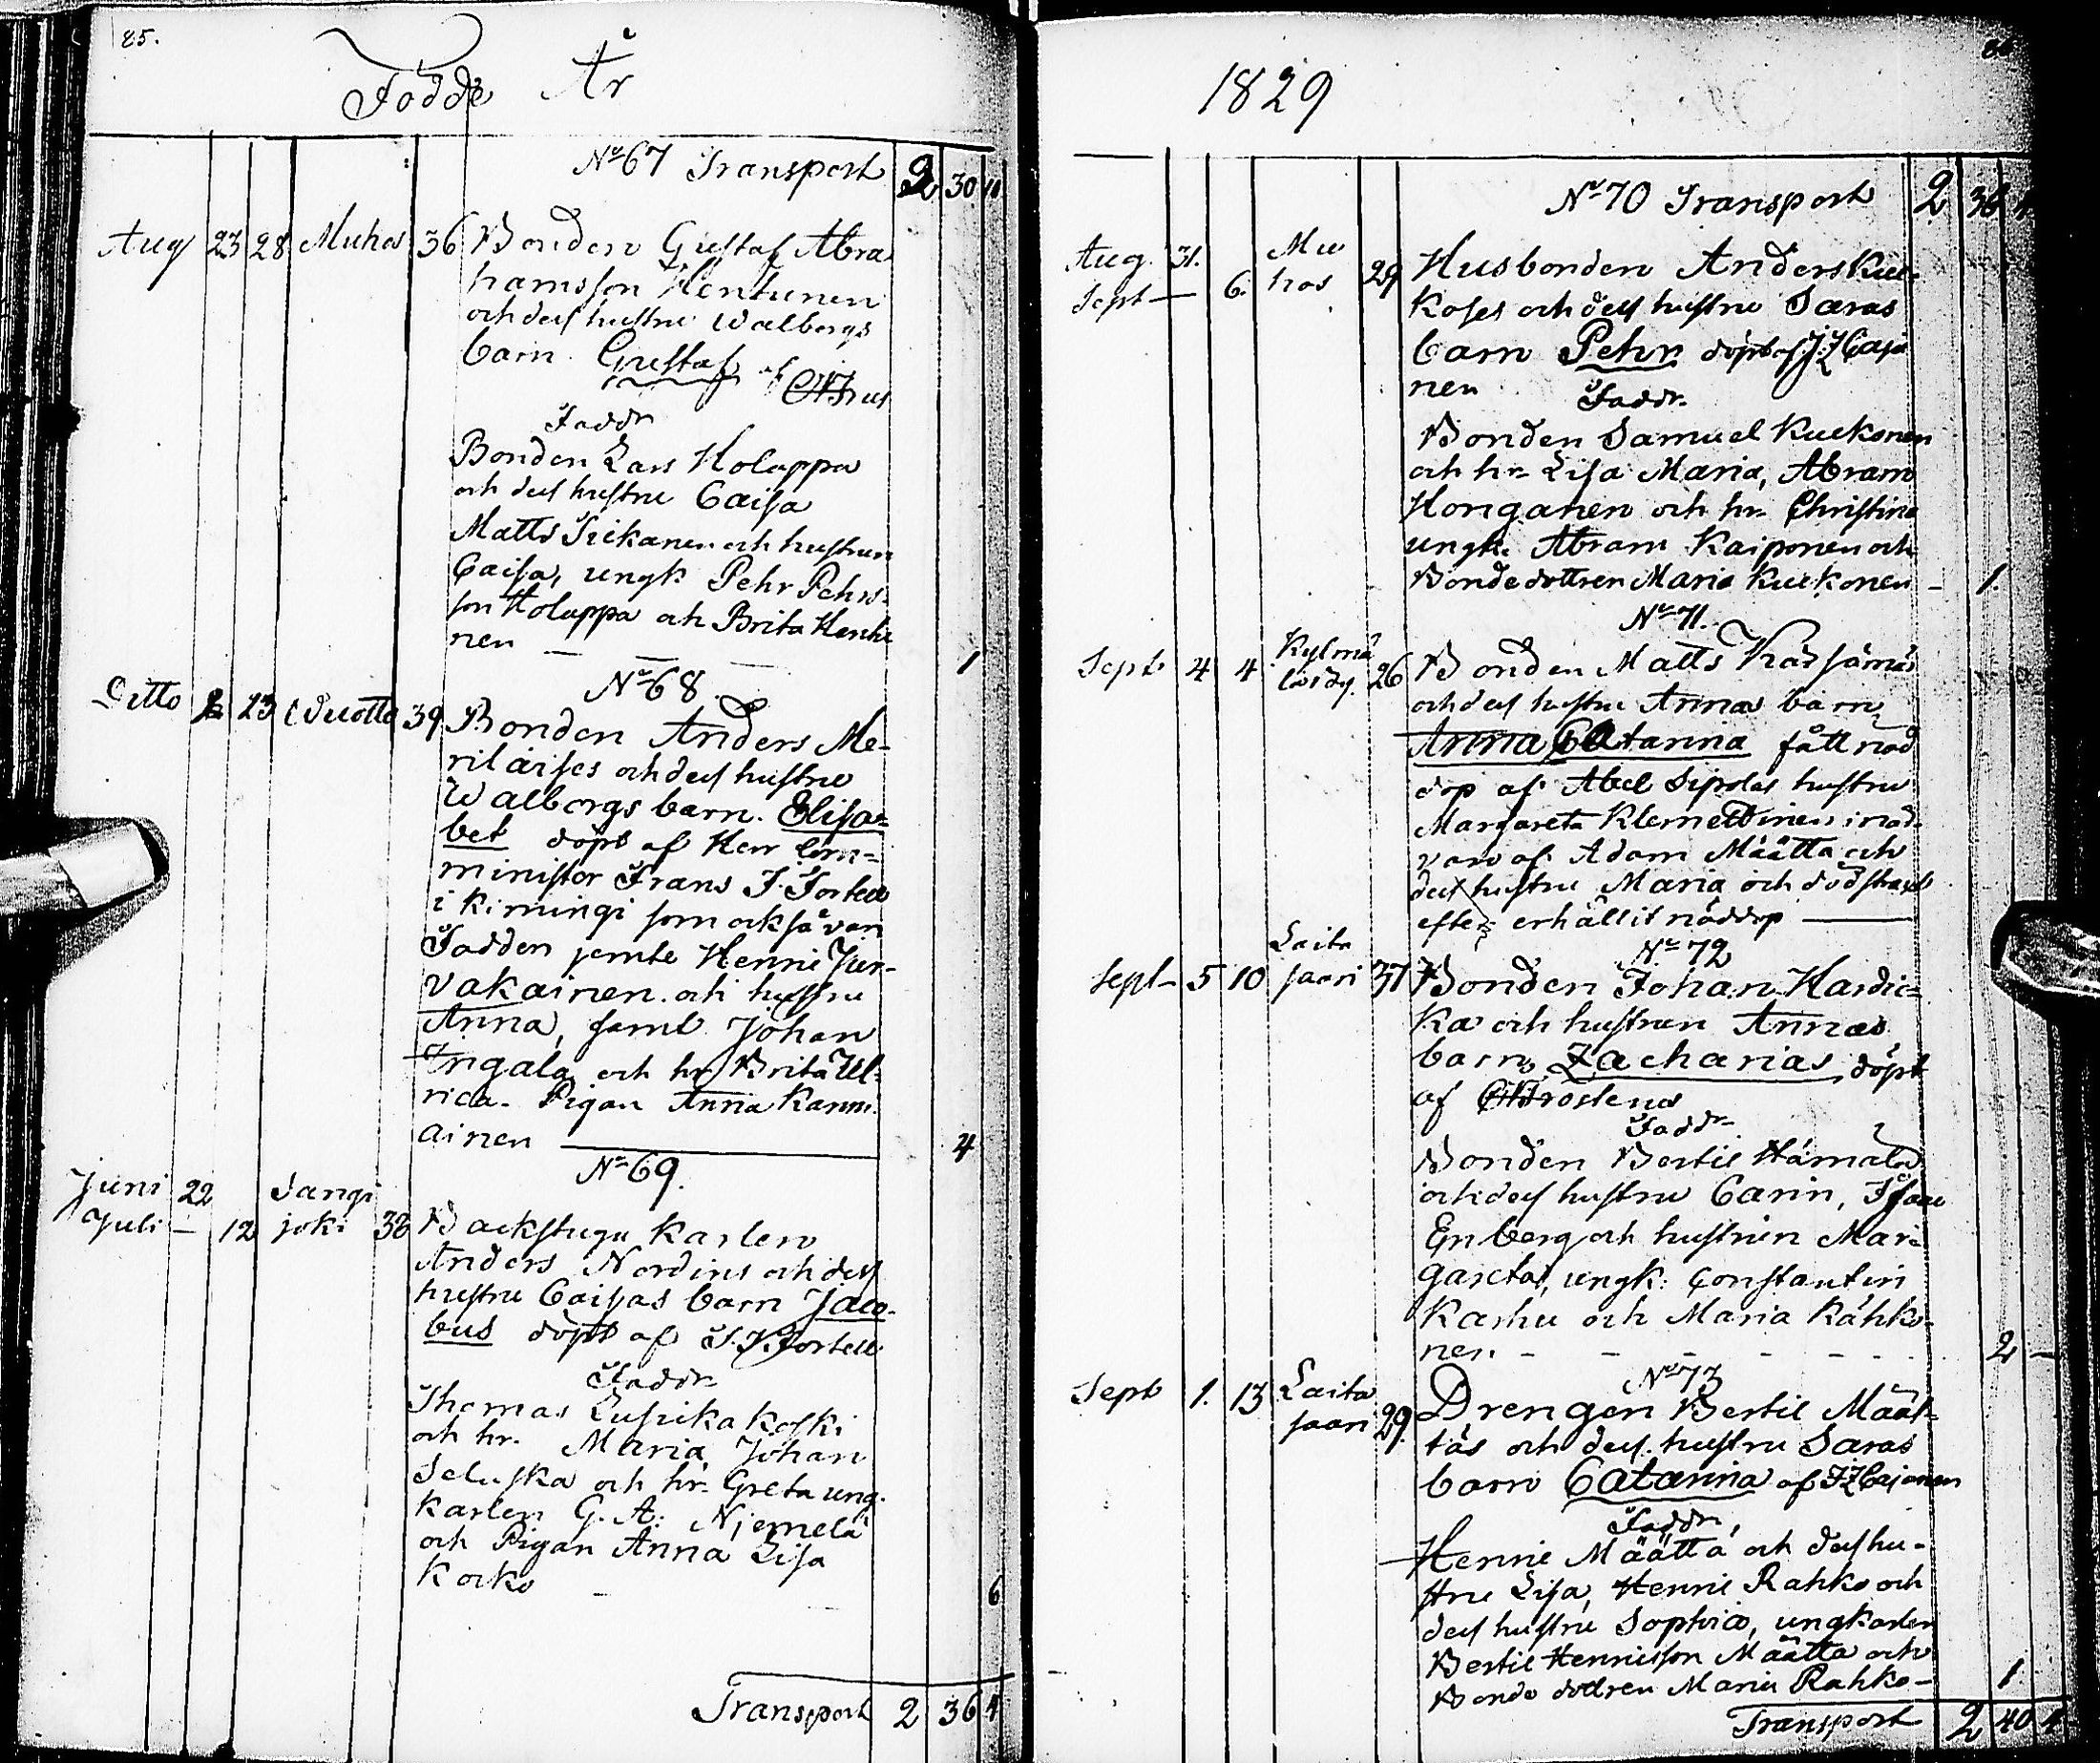 85.
Födde År
No 67 Transport 2 30 11
Aug 23 28 Muhos 36 Bonden Gustaf Abra
hamsson Hentunen
och dess hustru Walborgs
barn Gustaf af
Faddr
Bonden Lars Holappa
och dess hustru Caisa
Matts Tickanen och hustrun
Caisa, ungk Pehr Pehrs-
son Holappa och Brita Hentu
nen 1
No 68.
Ditto 23 Vuotto 39 Bonden Anders Me-
riläises och dess hustru
Walborgs barn. Elisa-
bet döpt af Herr Com-
minister Frans J. Fortell
i Kimingi som också var
Fadder jemte Henric Jur-
vakainen och hustru
Anna, samt Johan
Ingala och hr Brita Ul-
rica. Pigan Anna Kann-
ainen 4
No 69.
Juni 22 Sangi
Juli — 12 joki 38 Backstugu karlen
Anders Nordins och dess
hustru Caisas barn Jaco-
bus döpt af Fortell
Faddr
Thomas Lusikakoski
och hr. Maria, Johan
Seluska och hr. Greta ung-
karlen G. A. Niemelä
och Pigan Anna Lisa
Korko 6
Transport 2 36 4
86
1829
No 70 Transport 2 36
Aug. 31. Mu
Sept — 6. hos 29 Husbonden Anders Kuc-
koses och dess hustru Saras
barn Pehr döpt af J. Z. Caja
nen Faddr.
Bonden Samuel Kuckonen
och hr. Lisa Maria, Abram
Honganen och hr. Christina
ungk. Abram Kaiponen och
Bondedottren Maria Kuckonen - 1.
No 71.
Sept 4 4 Kylmä
26 Bonden Matts Karjamäs
och dess hustru Annas barn
Anna Catarina fått nöd
dop af Abel Sipolas hustru
Margareta Klemettinen i när-
varo af Adam Määtta och
dess hustru Maria och död strax
efter erhållit nöddop
No 72
Sept — 5 10 Laita
saari 37 Bonden Johan Hardic-
ka och hustrun Annas
barn Zacharias, döpt
af
Faddr
Bonden Bertil Hämälä
och dess hustru Carin, Isaac
Enberg och hustrun Mar-
gareta, ungk: Constantin
Karhu och Maria Kähkö-
nen. 2
No 73
Sept 1. 13 Laita
saari 29. Drengen Bertil Määt-
täs och dess hustru Saras
barn Catarina af J Z Cajanen
Faddr,
Henric Määttä och dess hu-
stru Lisa, Henric Rahko och
dess hustru Sophia, ungkarlen
Bertil Henricsson Määtta och
Bonde dottren Maria Rahko - 1.
Transport 2 40 4